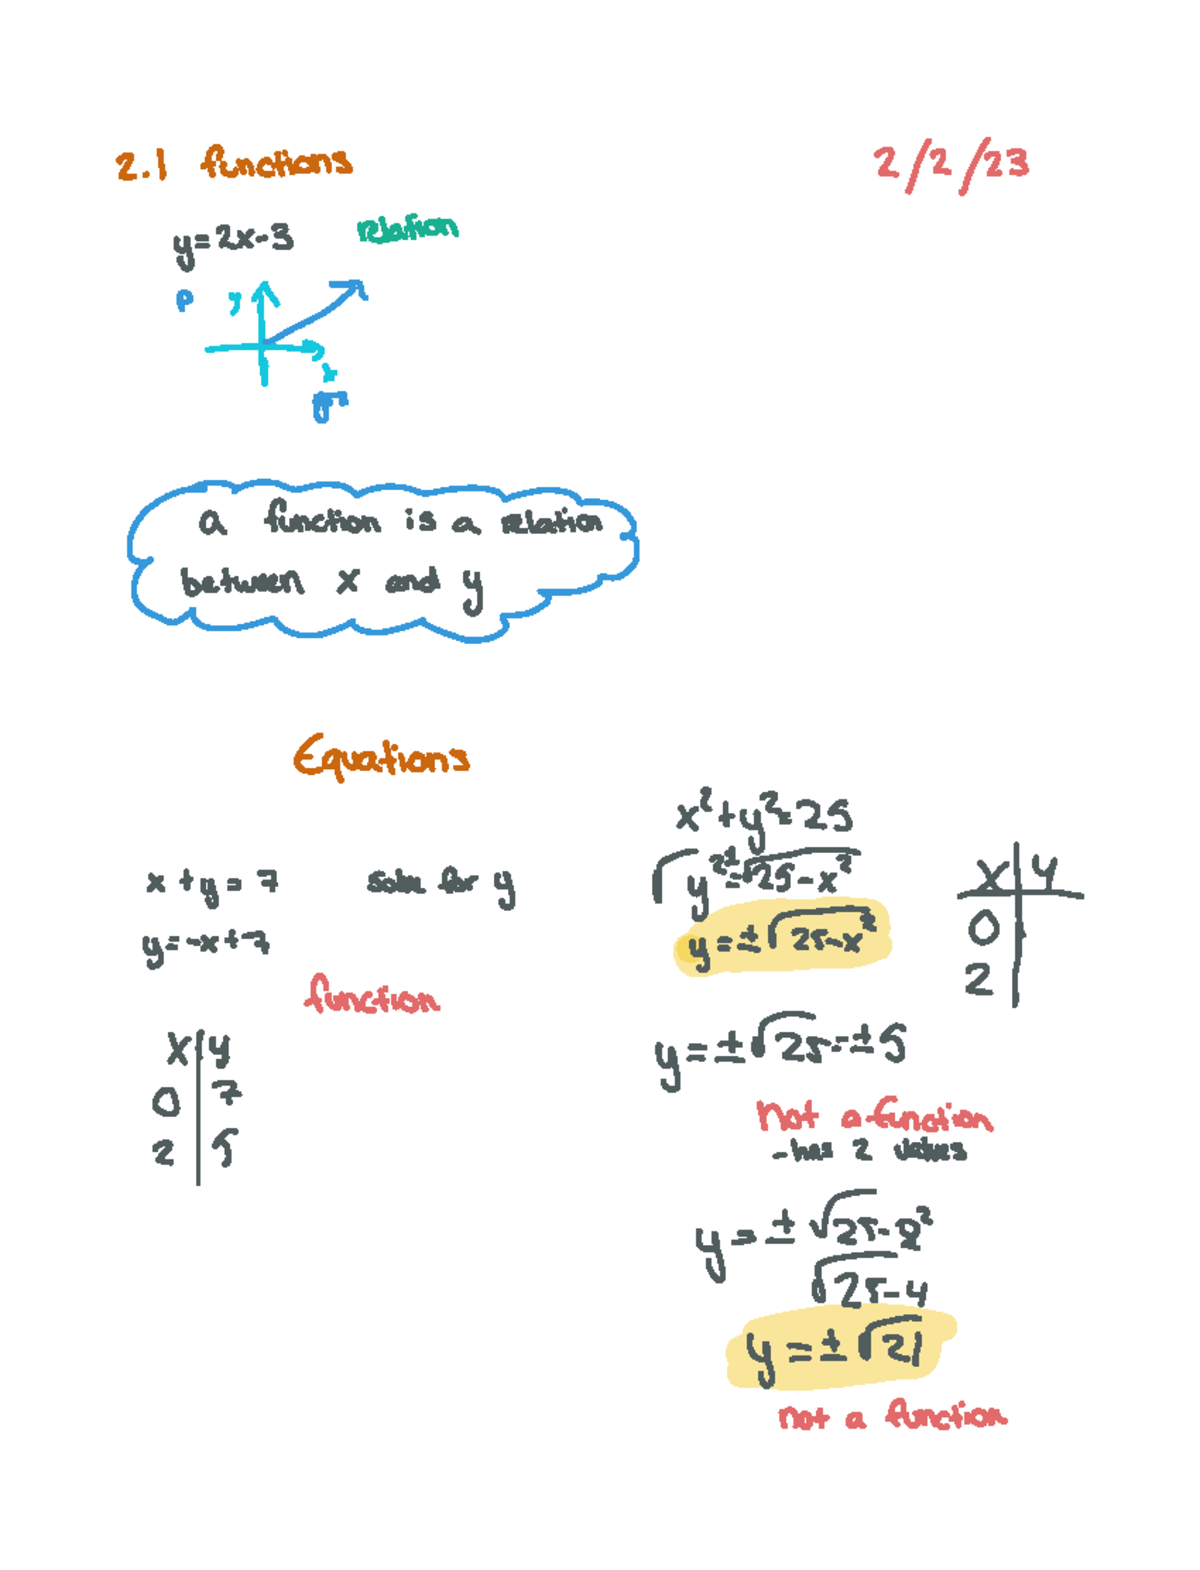 2.1 functions 2/2/23
y=2x-3 relation
p y
x
a function is a relation
between x and y
Equations
x + y = 7 solve for y
y=-x+7
function
x y
0 7
2 5
x²+y²=25
y²=±√25-x²
y=±√25-x²
x y
0
2
y=±√25=±5
not a function
-has 2 values
y=±√25-2²
√25-4
y=±√21
not a function